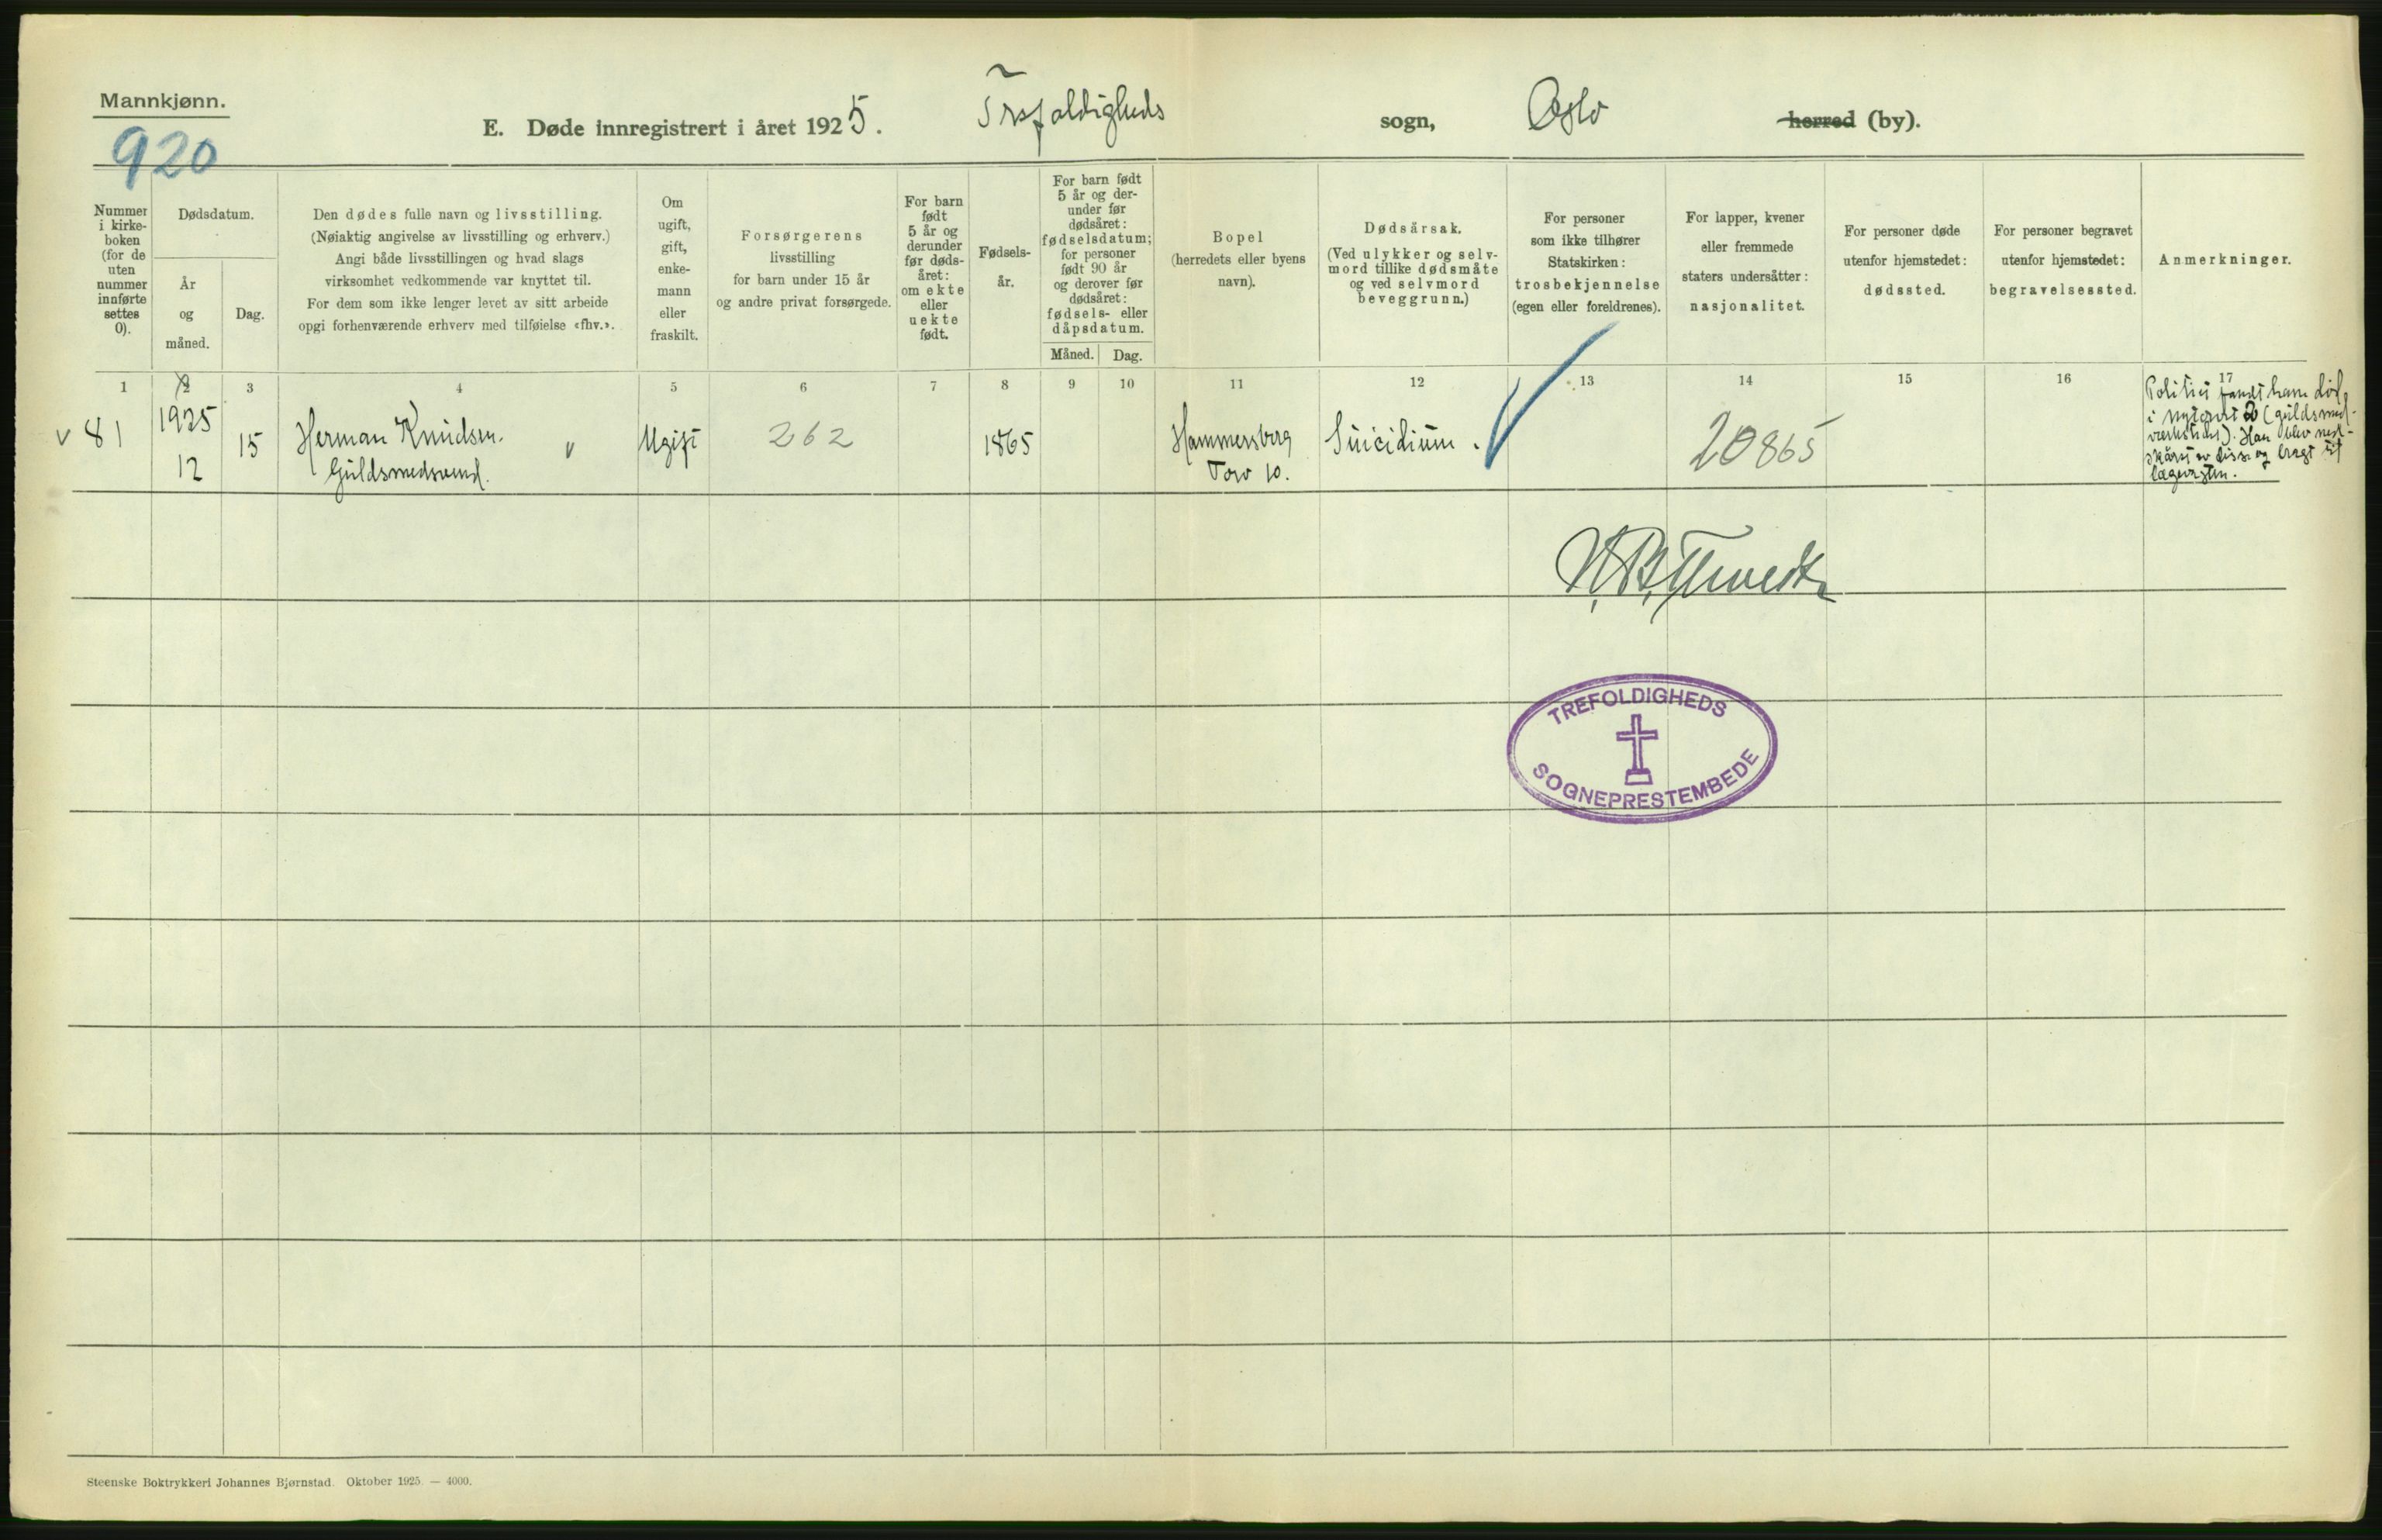 Mannkjønn.
920
E. Døde innregistrert i året 1925. Trefoldigheds sogn, Oslo herred (by).
Nummer
i kirke-
boken
(for de
uten
nummer
innførte
settes
0).
Dødsdatum.
År
og
måned.
Dag.
Den dødes fulle navn og livsstilling.
(Nøiaktig angivelse av livsstilling og erhverv.)
Angi både livsstillingen og hvad slags
virksomhet vedkommende var knyttet til.
For dem som ikke lenger levet av sitt arbeide
opgi forhenværende erhverv med tilføielse «fhv.».
Om
ugift,
gift,
enke-
mann
eller
fraskilt.
Forsørgerens
livsstilling
for barn under 15 år
og andre privat forsørgede.
For barn
født
5 år og
derunder
før døds-
året:
om ekte
eller
uekte
født.
Fødsels-
år.
For barn født
5 år og der-
under før
dødsåret:
fødselsdatum;
for personer
født 90 år
og derover før
dødsåret:
fødsels- eller
dåpsdatum.
Måned. Dag.
Bopel
(herredets eller byens
navn).
Dødsårsak.
(Ved ulykker og selv-
mord tillike dødsmåte
og ved selvmord
beveggrunn.)
For personer
som ikke tilhører
Statskirken:
trosbekjennelse
(egen eller foreldrenes).
For lapper, kvener
eller fremmede
staters undersåtter:
nasjonalitet.
For personer døde
utenfor hjemstedet:
dødssted.
For personer begravet
utenfor hjemstedet:
begravelsessted.
Anmerkninger.
1 2 3 4 5 6 7 8 9 10 11 12 13 14 15 16 17
81
1925
12
15
Herman Knudsen.
Guldsmedsvend.
Ugift
262
1865
Hammersborg
Torv 10.
Suicidium.
20865
Politiet fandt ham død
i (guldsmed-
værksted). Han blev ned-
skåret av disse og bragt til
lægevagten.
TREFOLDIGHEDS
SOGNEPRESTEMBEDE
Steenske Boktrykkeri Johannes Bjørnstad. Oktober 1925. — 4000.